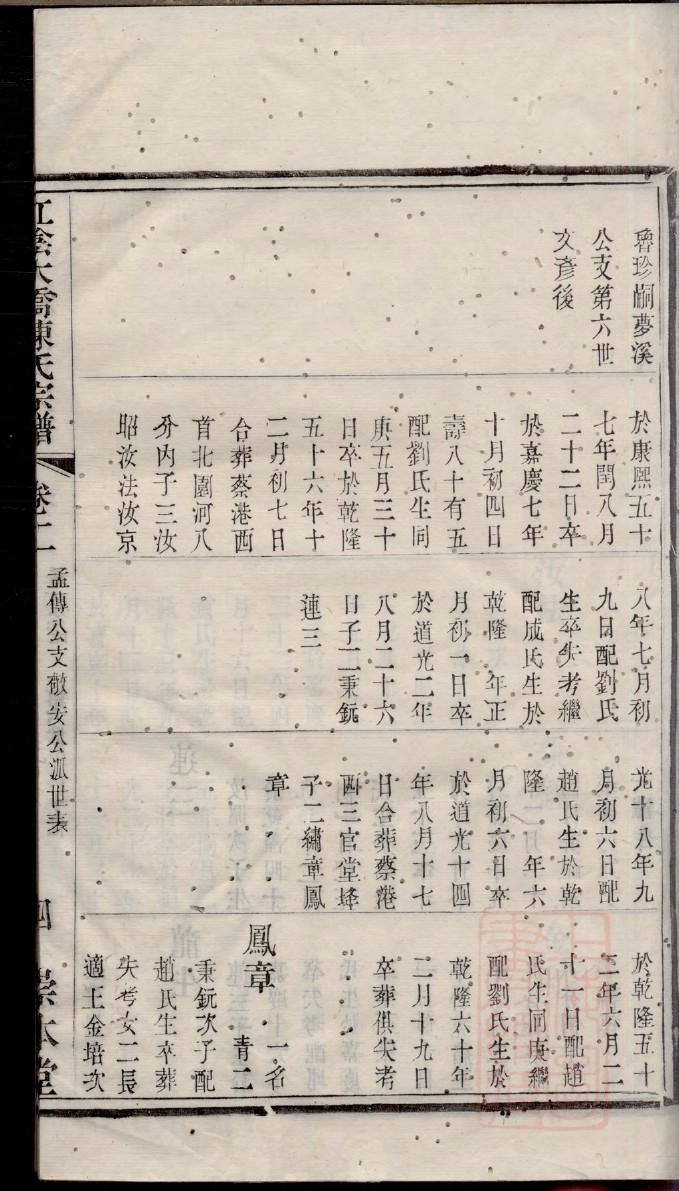 魯珍嗣夢溪
公支第六世
文彥後
於康熙五十
七年閏八月
二十二日卒
於嘉慶七年
十月初四日
壽八十有五
配劉氏生同
庚五月三十
日卒於乾隆
五十六年十
二月初七日
合葬蔡港西
首北園河八
分內子三汝
昭汝法汝京
八年七月初
九日配劉氏
生卒失考繼
配成氏生於
乾隆 年正
月初一日卒
於道光二年
八月二十六
日子二秉鈨
連三
光十八年九
月初六日配
趙氏生於乾
隆二 年六
月初六日卒
於道光十四
年八月十七
日合葬蔡港
西三官堂後
子二繡章鳳
章
於乾隆五十
二年六月二
十一日配趙
氏生同庚繼
配劉氏生於
乾隆六十年
二月十九日
卒葬俱失考
鳳章 一名
青二
秉鈨次子配
趙氏生卒葬
失考女二長
適王金培次
江陰大喬陳氏宗譜
卷二
孟傳公支敬安公派世表
四
崇本堂